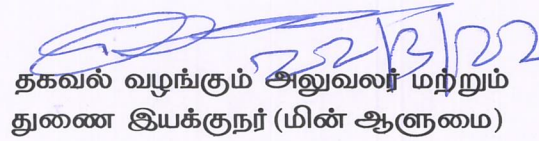 22/3/22
தகவல் வழங்கும் அலுவலர் மற்றும்
துணை இயக்குநர் (மின் ஆளுமை)